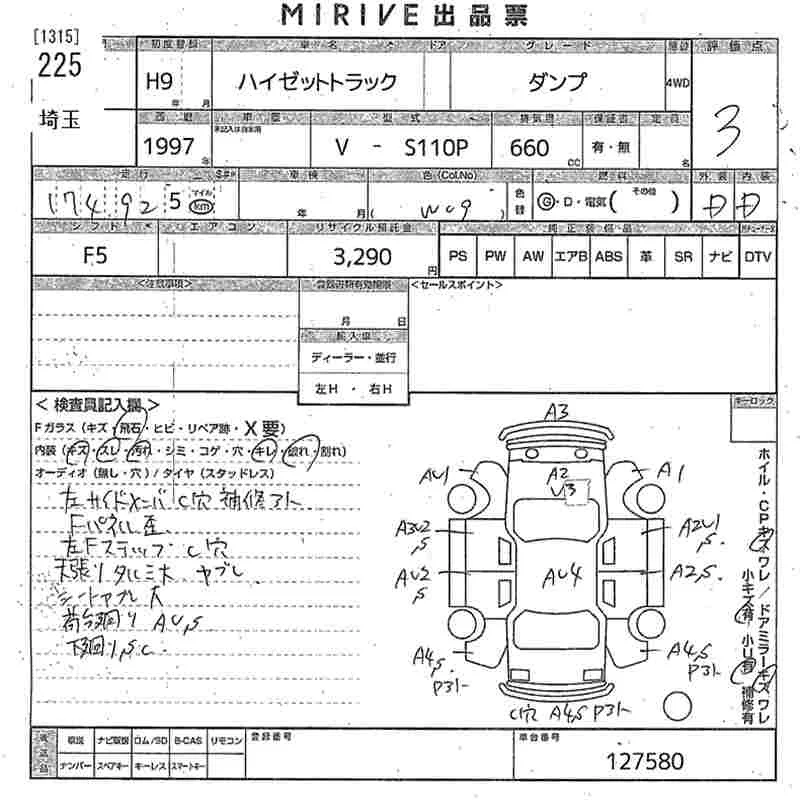 MIRIVE 出品票
[1315]
225
埼玉
初度登録 車名 ドア グレード 評価点
H9 年 月 ハイゼットトラック ダンプ 4WD
3
車歴 型式 排気量 保証書 定員
1997 年 V - S110P 660 CC 有・無 名
走行 車検 色(Col.No) 燃料 外装 内装
174,925 マイル km 年 月 ( W09 ) 色替 G・D・電気( その他 ) D D
シフト エアコン リサイクル預託金 純正装備品
F5 3,290 円 PS PW AW エアB ABS 革 SR ナビ DTV
<注意事項> <セールスポイント>
月 日
輸入車
ディーラー・並行
左H ・ 右H
キーロック
< 検査員記入欄 >
Fガラス (キズ・飛石・ヒビ・リペア跡・X要)
内装 (キズ・スレ・汚れ・シミ・コゲ・穴・キレ・破れ・割れ)
オーディオ (無し・穴) / タイヤ (スタッドレス)
左サイドメンバ C穴 補修アト
Fパネル歪
左Fステップ C穴
天張りタルミ大 ヤブレ
シートヤブレ大
荷台廻り AU,S
下廻り,S C
A3
A2
U3
AU1 A1
A3U2 ,S A2U1 ,S
AU4
AU2 ,S A2,S
A4,S P3ト A4,S P3ト
C穴 A4,S P3ト
ホイル・CPキズワレ / ドアミラーキズワレ
小キズ有 小U有 補修有
後送品 取説 ナビ取説 ロム/SD B-CAS リモコン 登録番号 車台番号
ナンバー スペアキー キーレス スマートキー 127580